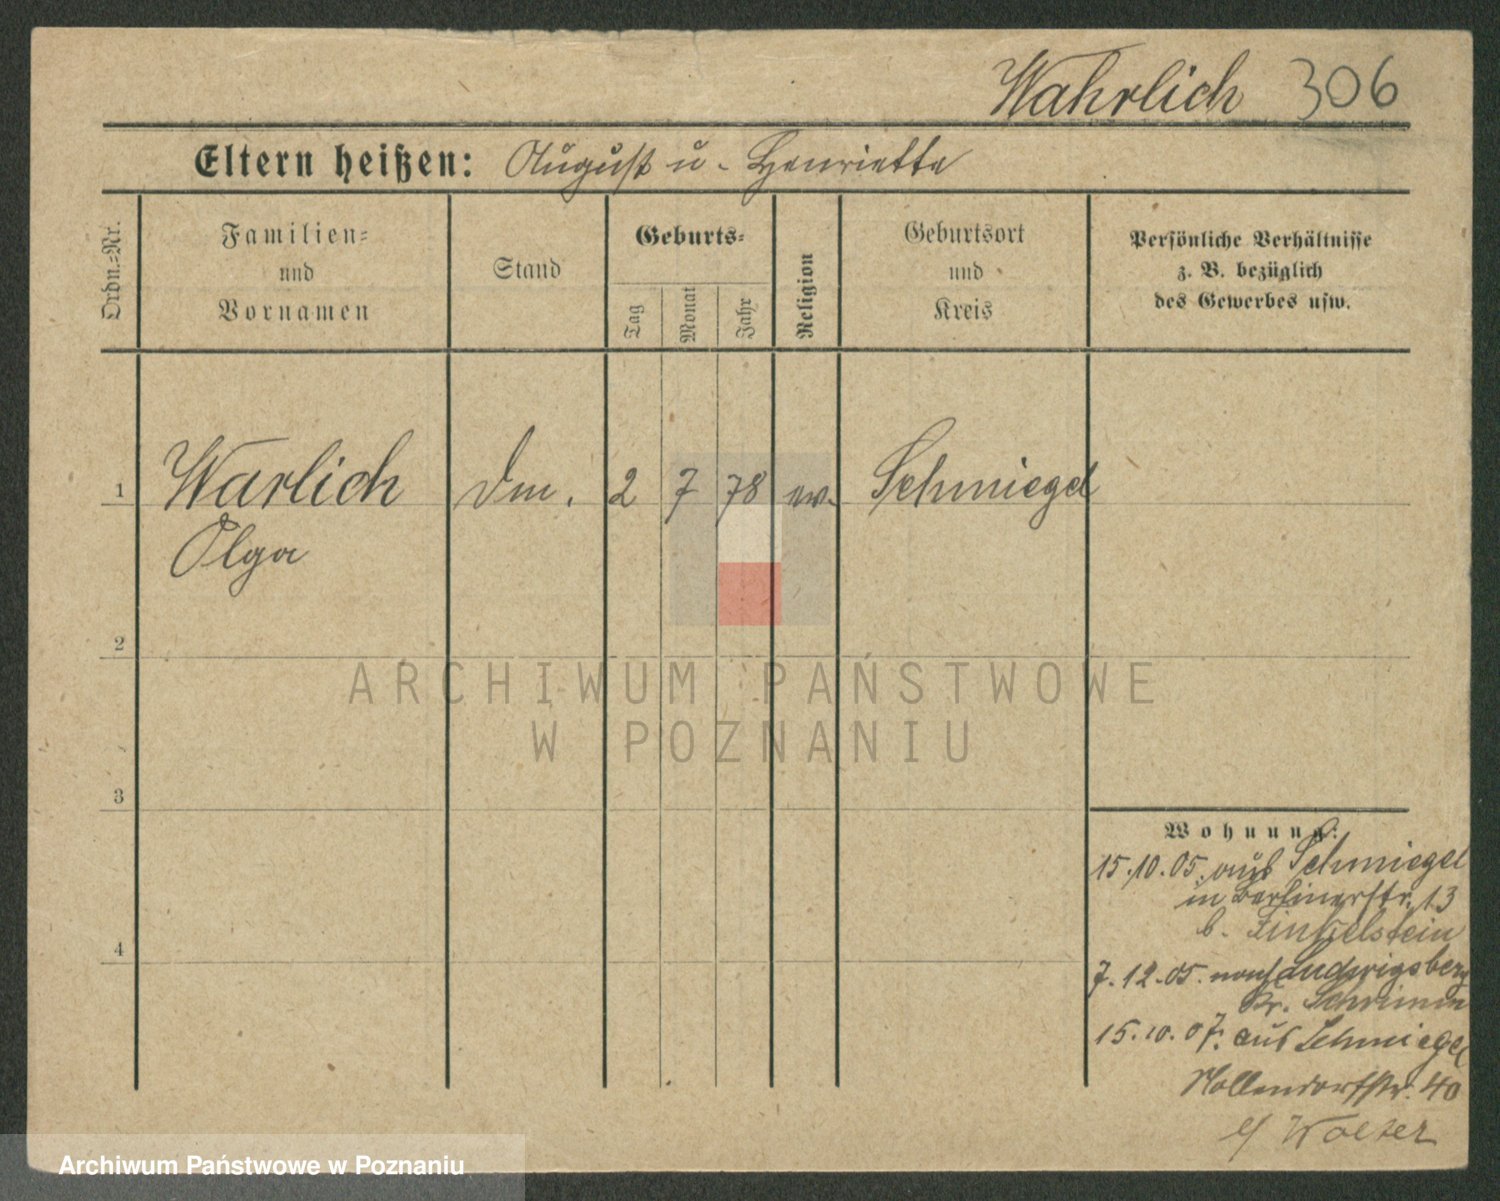 Wahrlich 306
Eltern heißen: August u. Henriette
Ordn.-Nr.
Familien-
und
Vornamen
Stand
Geburts-
Tag
Monat
Jahr
Religion
Geburtsort
und
Kreis
Persönliche Verhältnisse
z. B. bezüglich
des Gewerbes usw.
1 Warlich Dm. 2 7 78 ev. Schmiegel
Olga
2
3
4
Wohnung:
15.10.05. aus Schmiegel
in Berlinerstr. 13
b. Finkelstein
7.12.05. nach Ludwigsberg
Kr. Schrimm
15.10.07. aus Schmiegel
Mollendorfstr. 40
b/
ARCHIWUM PAŃSTWOWE
W POZNANIU
Archiwum Państwowe w Poznaniu